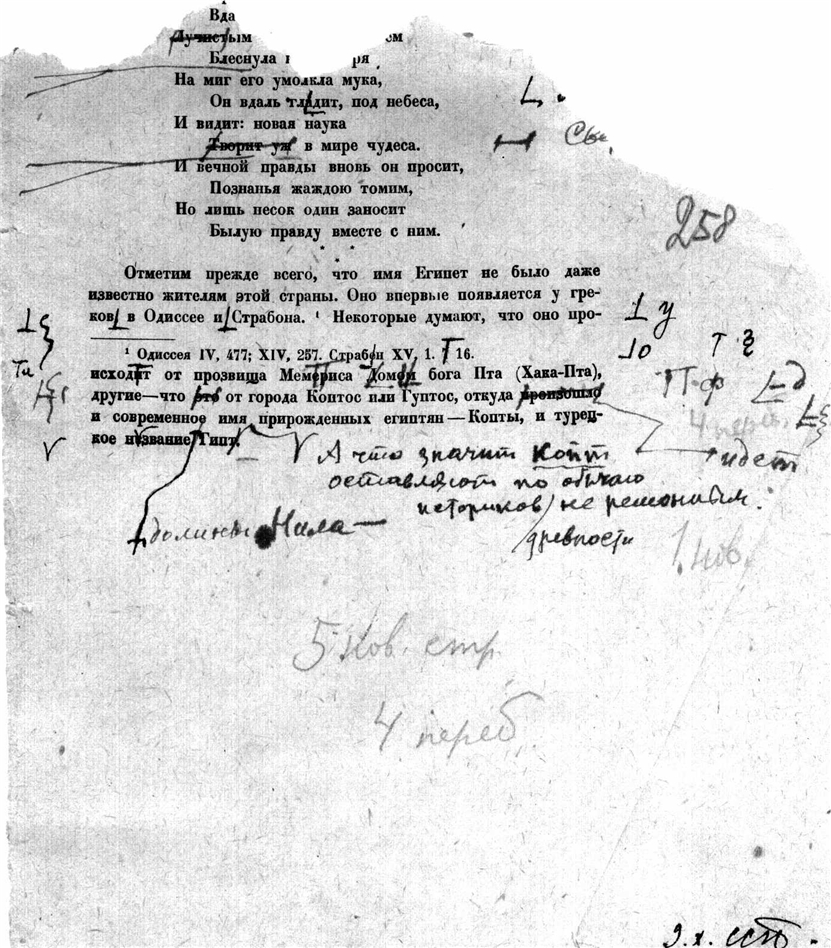 Вда
Лучистым ем
Блеснула ря
На миг его умолкла мука,
Он вдаль глядит, под небеса,
И видит: новая наука
Творит уж в мире чудеса.
И вечной правды вновь он просит,
Познанья жаждою томим,
Но лишь песок один заносит
Былую правду вместе с ним.
258
Отметим прежде всего, что имя Египет не было даже
известно жителям этой страны. Оно впервые появляется у гре-
ков в Одиссее и Страбона. ¹ Некоторые думают, что оно про-
¹ Одиссея IV, 477; XIV, 257. Страбон XV, 1. 16.
исходит от прозвища Мемфиса Домом бога Пта (Хака-Пта),
другие—что это от города Коптос или Гуптос, откуда произошло
и современное имя прирожденных египтян — Копты, и турец-
кое название Гипт.
4 переб.
идет
А что значит Копт
оставляют по обычаю
историков не
древности
долины Нила —
1 нов.
5 нов. стр.
4 переб